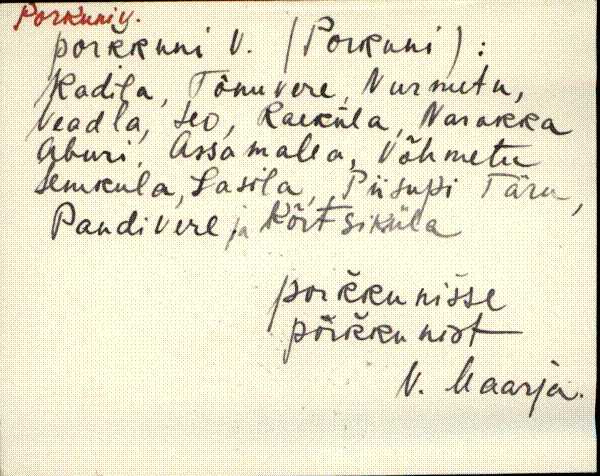 Porkuni v.
porkkuni v. (Porkuni):
Kadila, Tõnuvere, Nurmetu,
Veadla, Leo, Raeküla, Narakka
Aburi, Assamalla, Võhmetu
Lemküla, Sasila, Piisupi Täru,
Pandivere ja Kõrtsiküla
pořkkunisse
põřkkunist
V. Maarja.